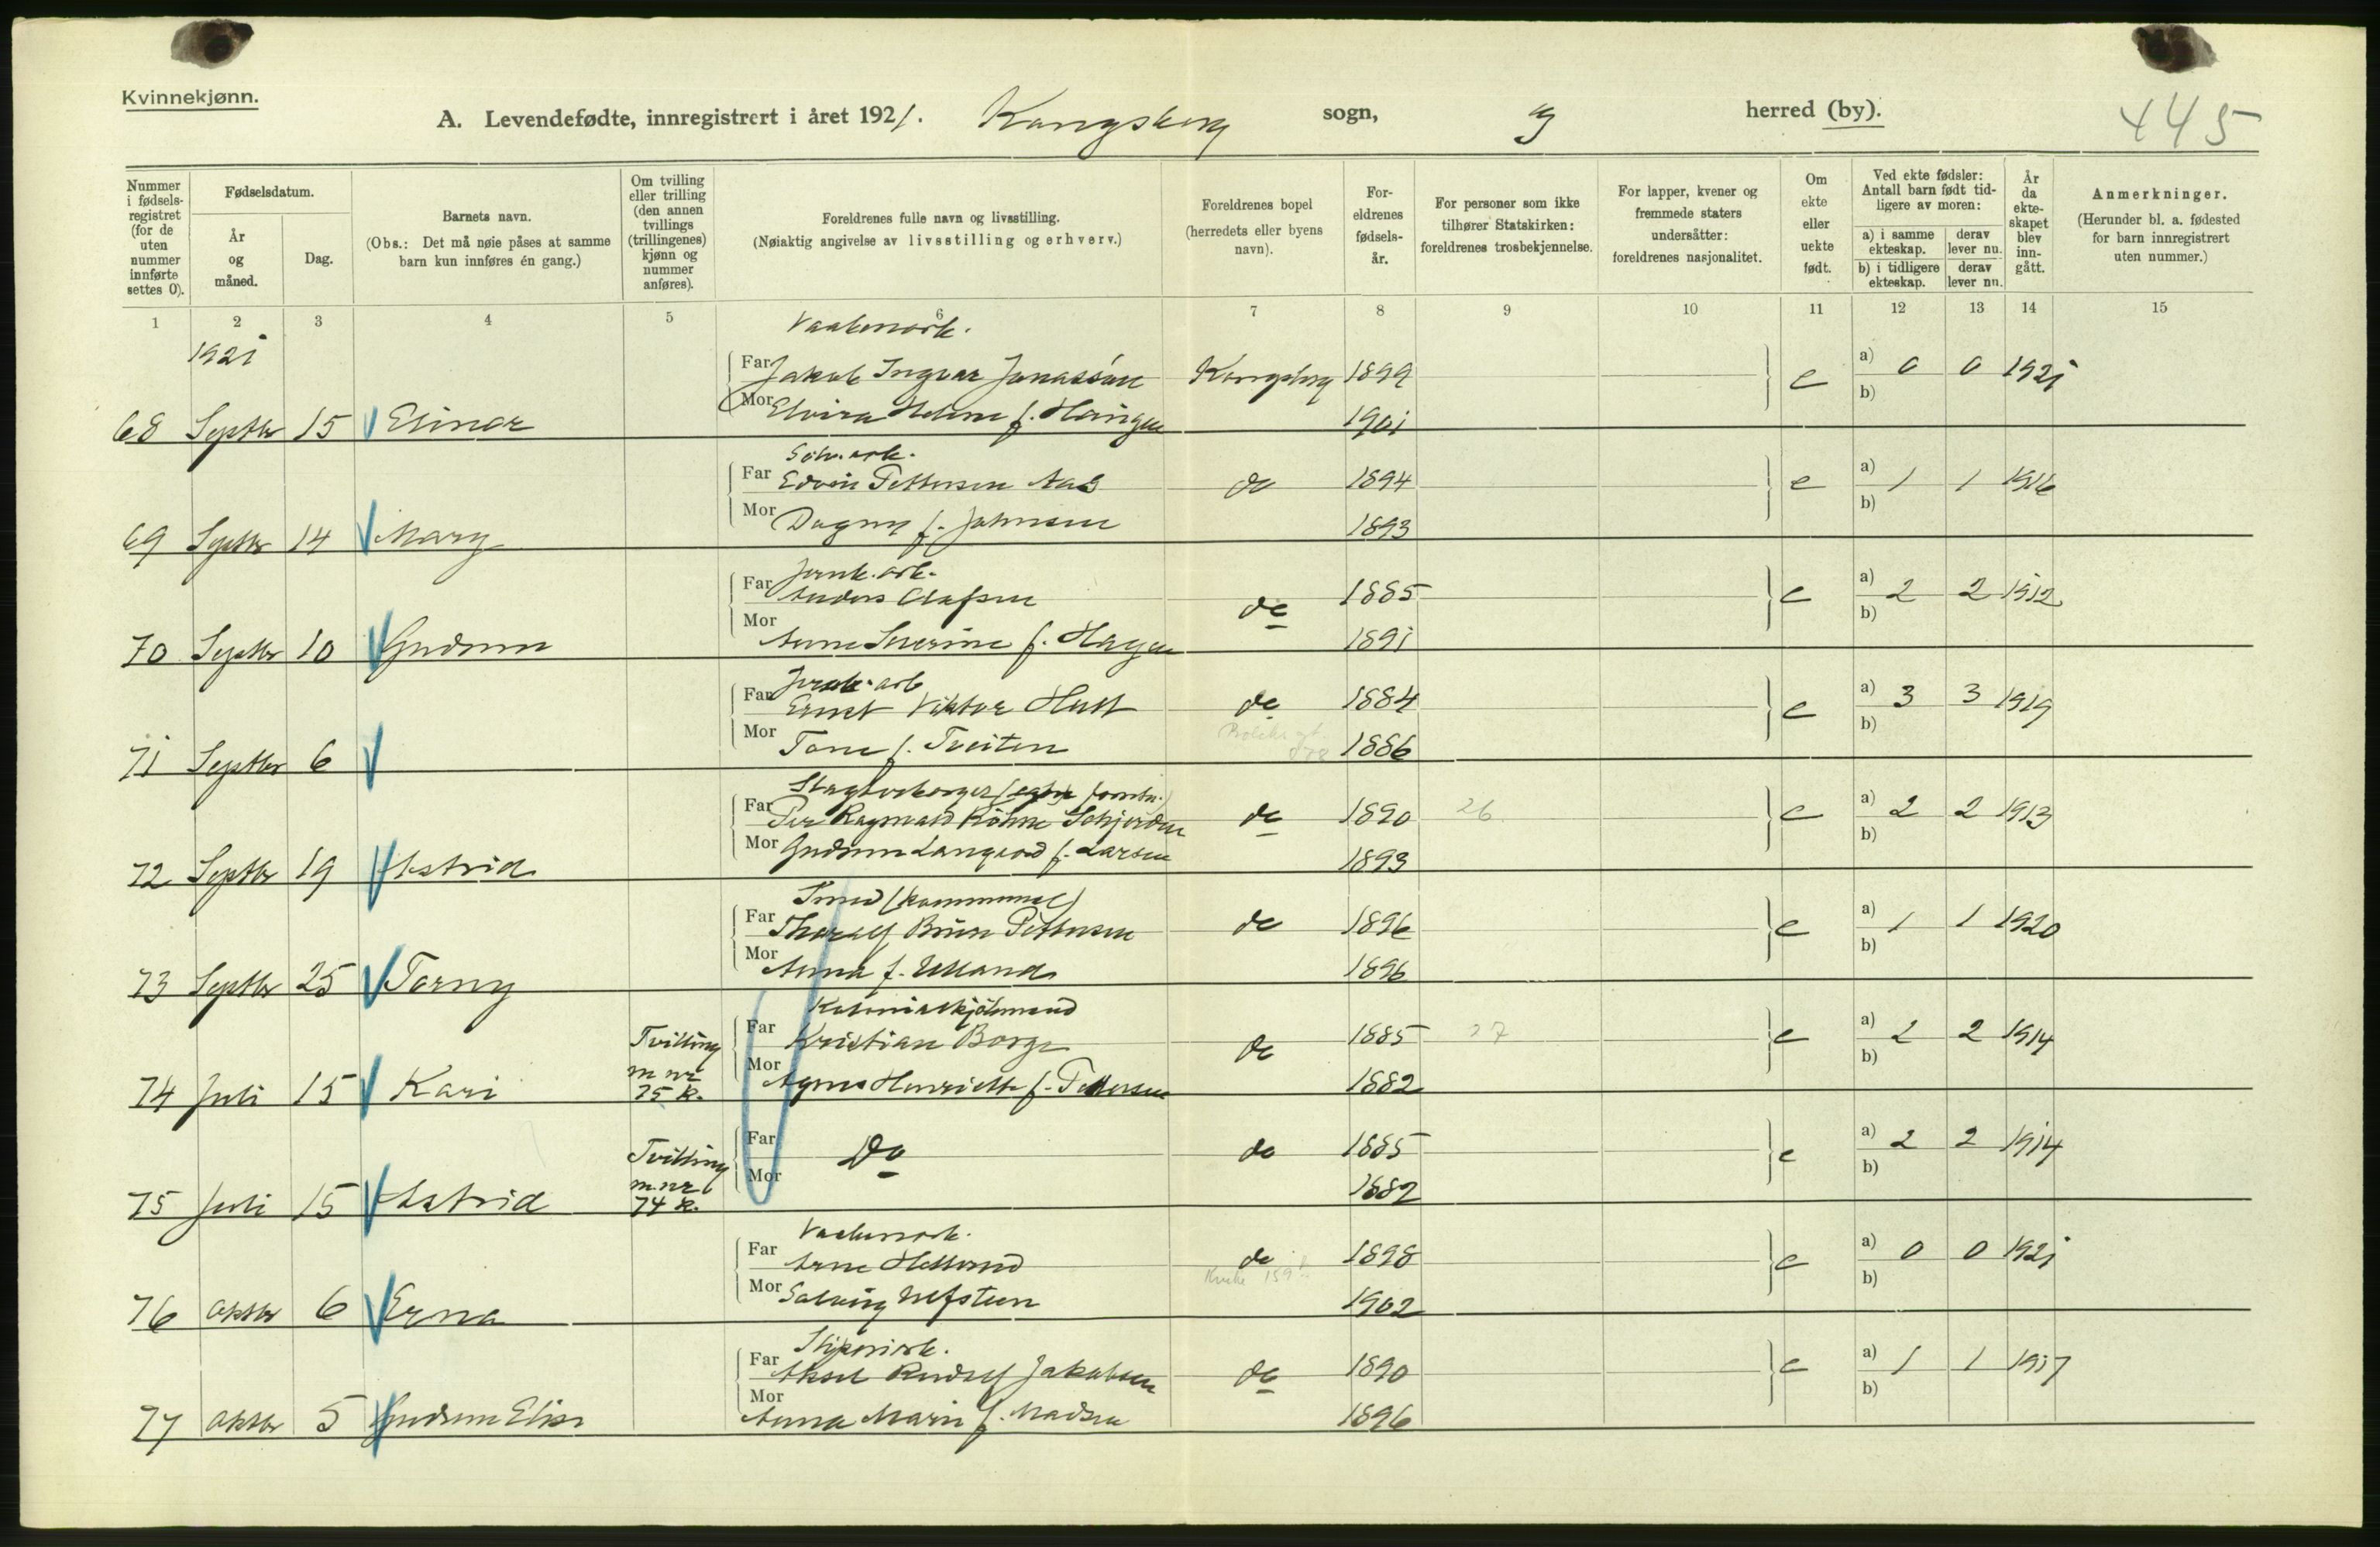 Kvinnekjønn.
A. Levendefødte, innregistrert i året 1921. Kongsberg sogn, herred (by). 445
Nummer i fødselsregistret (for de uten nummer innførte settes 0).
Fødselsdatum.
År og måned.
Dag.
Barnets navn.
(Obs.: Det må nøie påses at samme barn kun innføres én gang.)
Om tvilling eller trilling (den annen tvillings (trillingenes) kjønn og nummer anføres).
Foreldrenes fulle navn og livsstilling.
(Nøiaktig angivelse av livsstilling og erhverv.)
Foreldrenes bopel (herredets eller byens navn).
Foreldrenes fødselsår.
For personer som ikke tilhører Statskirken: foreldrenes trosbekjennelse.
For lapper, kvener og fremmede staters undersåtter: foreldrenes nasjonalitet.
Om ekte eller uekte født.
Ved ekte fødsler: Antall barn født tidligere av moren:
a) i samme ekteskap. derav lever nu.
b) i tidligere ekteskap. derav lever nu.
År da ekteskapet blev inngått.
Anmerkninger.
(Herunder bl. a. fødested for barn innregistrert uten nummer.)
1 2 3 4 5 6 7 8 9 10 11 12 13 14 15
1921
Vaabenarb.
Far Jakob Ingvar Jonassen Kongsberg 1899 e a) 0 0 1921
Mor Elvira Helene f. b)
68 Septbr 15 Elinor 1901
Sølv.arb.
Far Edvin Pettersen Aas do 1894 e a) 1 1 1916
Mor Dagny f. Johnsen 1893 b)
69 Septbr 14 Mary
Jernb.arb.
Far Anders Olafsen do 1885 e a) 2 2 1912
Mor Anne Severine f. Hagen 1891 b)
70 Septbr 10 Gudrun
Jernb.arb
Far Ernst Viktor do 1884 e a) 3 3 1919
Mor Tone f. Tveiten 1886 b)
71 Septbr 6
Far Per Ragnvald do 1890 26 e a) 2 2 1913
Mor Gudrun f. Larsen 1893 b)
72 Septbr 19 Astrid
Smed (kommunal)
Far Thoralf Pettersen do 1896 e a) 1 1 1920
Mor Anna f. 1896 b)
73 Septbr 25 Torny
Kolonialkjøbmand
Tvilling Far Kristian Borge do 1885 27 e a) 2 2 1914
m nr 75 k. Mor Agnes Henriette f. Pettersen 1882 b)
74 Juli 15 Kari
Tvilling Far Do do 1885 e a) 2 2 1914
m. nr 74 k. Mor 1882 b)
75 Juli 15 Astrid
Vaabenarb.
Far Arne do 1898 e a) 0 0 1921
Mor Solveig 1902 b)
76 Oktbr 6 Erna
Far Aksel Rudolf Jakobsen do 1890 e a) 1 1 1917
Mor Anna Marie f. Madsen 1896 b)
77 Oktbr 5 Gudrun Elise